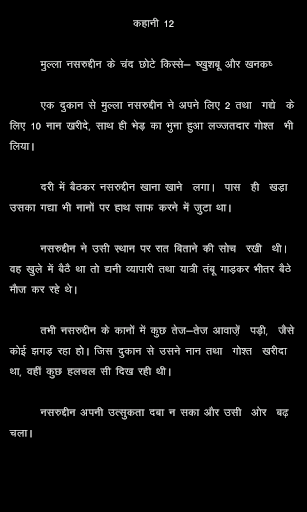 कहानी 12
मुल्ला नसरुद्दीन के चंद छोटे किस्से– ष्खुशबू और खनकष्
एक दुकान से मुल्ला नसरुद्दीन ने अपने लिए 2 तथा गद्ये के
लिए 10 नान खरीदे, साथ ही भेड़ का भुना हुआ लज्जतदार गोश्त भी
लिया।
दरी में बैठकर नसरुद्दीन खाना खाने लगा। पास ही खड़ा
उसका गद्या भी नानों पर हाथ साफ करने में जुटा था।
नसरुद्दीन ने उसी स्थान पर रात बिताने की सोच रखी थी।
वह खुले में बैठै था तो द्यनी व्यापारी तथा यात्री तंबू गाड़कर भीतर बैठे
मौज कर रहे थे।
तभी नसरुद्दीन के कानों में कुछ तेज–तेज आवाज़ें पड़ी, जैसे
कोई झगड़ रहा हो। जिस दुकान से उसने नान तथा गोश्त खरीदा
था, वहीं कुछ हलचल सी दिख रही थी।
नसरुद्दीन अपनी उत्सुकता दबा न सका और उसी ओर बढ़
चला।